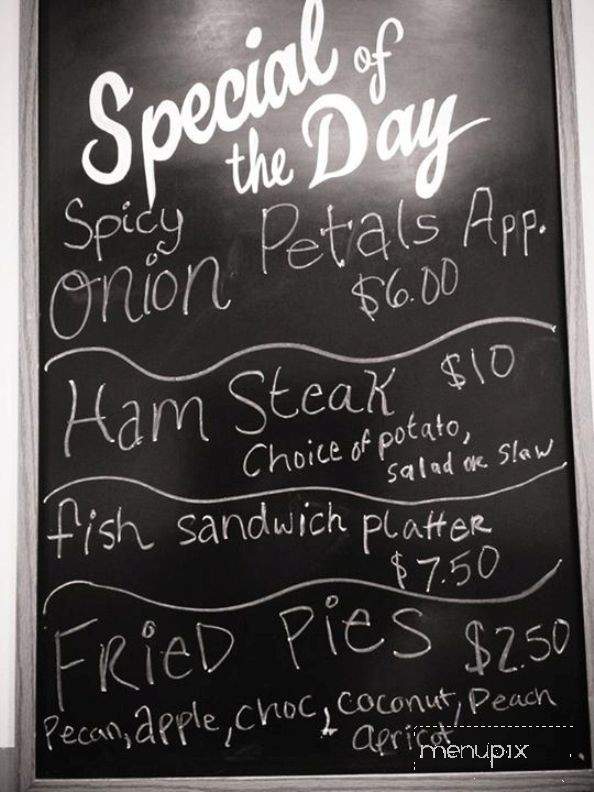 Special of
the Day
Spicy
Onion Petals App.
$6.00
Ham Steak $10
Choice of potato,
salad or slaw
fish sandwich platter
$7.50
FRiED PiES $2.50
Pecan, apple, choc, coconut, peach
apricot
menupix